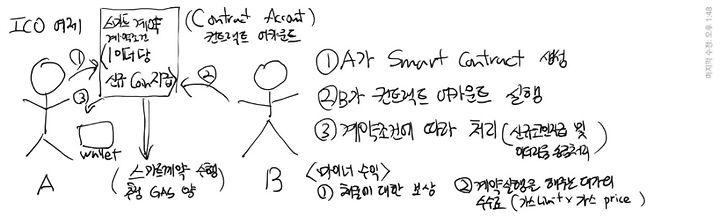 ICO 예제
스마트 계약
계약조건
1이더당
신규 Coin지급
(Contract Account)
컨트랙트 어카운트
①
②
③
wallet
A
B
(스마트계약 수행)
GAS 양
① A가 Smart Contract 생성
② B가 컨트랙트 어카운트 실행
③ 계약조건에 따라 처리 (신규코인지급 및
이더리움 송금처리)
<마이너 수익>
① 채굴에 대한 보상
② 계약실행을 해주는 대가의
수수료 (가스 limit x 가스 price)
마지막 수정: 오후 1:48